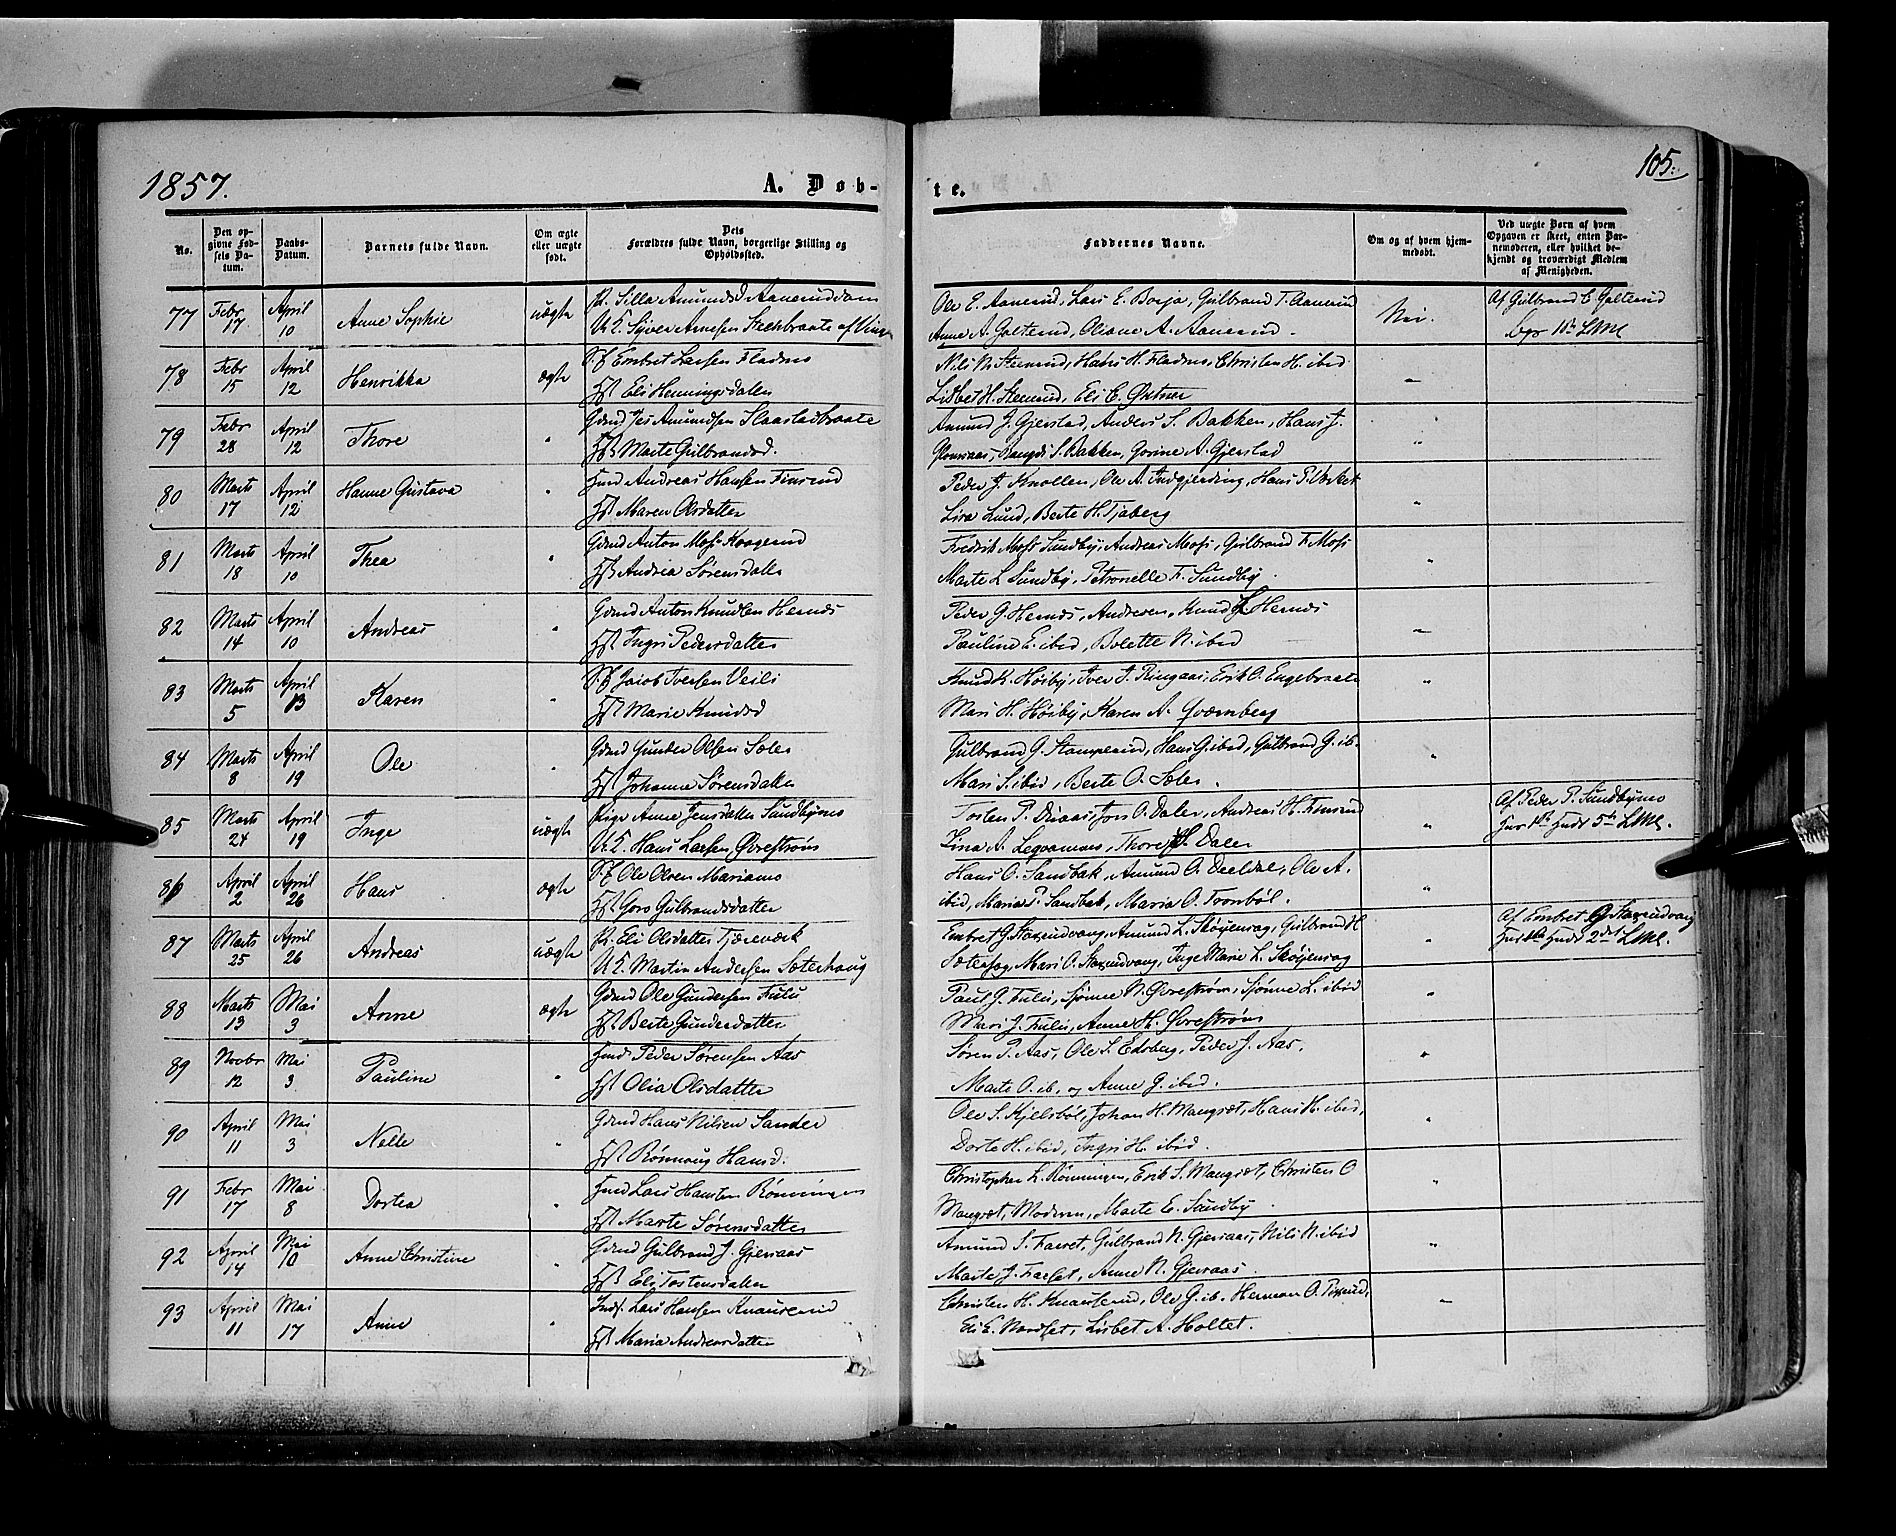 1857.
A. Døb-
te.
105.
No.
Den opgivne Fødsels Datum.
Daabs-Datum.
Barnets fulde Navn.
Om ægte eller uægte født.
Dets Forældres fulde Navn, borgerlige Stilling og Opholdssted.
Faddernes Navne.
Om og af hvem hjemmedøbt.
Ved uægte Barn af hvem Opgaven er skeet, enten Barnemoderen, eller hvilket bekjendt og troværdigt Medlem af Menigheden.
77 Febr 17 April 10 Anne Sophie uægte P. Silla Amundsd Aanerud
U. F. Syver Arnesen af Vinger
Ole E. Aanerud, Lars E. Borja, Gulbrand T. Aanerud
Anne A. Galterud, Oliane A. Aanerud. Nei.
Af Gulbrand E Galterud
78 Febr 15 April 12 Henrikka ægte Embret Larsen Fladnes
Hst Eli Henningsdatter
Nils N Stemrud, Hans H. Fladnes, Christen H. ibid
Lisbet H. Stemrud, Eli E.
79 Febr 28 April 12 Thore " Gdmd Jes Amundsen Slaastadbraate
Hst Marte Gulbrandsd.
Amund J. Gjerstad, Anders S. Bakken, Hans J.
S. Bakken, Gorine A. Gjerstad
80 Marts 17 April 12 Hanne Gustava " Hmd Andreas Hansen Finsrud
Hst Maren Olsdatter
Peder J. Knollen, Ole A. Hans P.
Lise Lund, Berte H. Tjaberg
81 Marts 18 April 10 Thea " Gdmd Anton Mosi
Hst Andrea Sørensdatter
Fredrik Mosi Sundby, Andreas Mosi, Gulbrand F. Mosi
Marte L Sundby, Petronelle F. Sundby.
82 Marts 14 April 10 Andreas " Gdmd Anton Knudsen Hernes
Hst Ingri Pedersdatter
Peder G. Hernes, Knud Hernes
Pauline E. ibid, Bolette N. ibid
83 Marts 5 April 13 Karen " Jacob Iversen Veili
Hst Marie Knudsd
Knud K. Høiby, Iver J. Ringaas, Erik O. Engebraate
Mari H. Høiby, Karen A. Qvernberg
84 Marts 8 April 19 Ole " Gdmd Gunder Olsen Soler
Hst Johanne Sørensdatter
Gulbrand G. Stamperud, Hans G. ibid, Gulbrand G. ib.
Mari S. ibid, Berte O. Soler.
85 Marts 24 April 19 Inge uægte Pige Anne Jensdatter Sundbymo
U. F. Hans Larsen, Øvrestrøm
Tosten P. O. Daler, Andreas H. Finsrud
Lina A. Thore H. Daler
Af Peder P. Sundbymo
86 April 2 April 26 Hans ægte Ole Olsen Mariamo
Hst Goro Gulbrandsdatter
Hans O. Sandbak, Amund O. Ole A.
ibid, Maria P. Sandbak, Maria O. Tronbøl.
87 Marts 25 April 26 Andreas uægte P. Eli Olsdatter Tjæreværk
U. F. Martin Andersen Sæterhaug
Embret G. Amund L. Skøyenaag, Gulbrand H
Mari O. Inge Marie L. Skøyenaag
Af Embret G
88 Marts 13 Mai 3 Anne ægte Gdmd Ole Gundersen Fulu
Hst Berte Gundersdatter
Paul G. Fulu, N. Øvrestrøm, L. ibid
Mari J. Fulu, Anne H. Øvrestrøm
89 Novbr 12 Mai 3 Pauline " Hmd Peder Sørensen Aas
Hst Olia Olsdatter
Søren P. Aas, Ole S. Edsberg, Peder J. Aas,
Marte O. ib. og Anne G. ibid.
90 April 11 Mai 3 Nelle " Gdmd Hans Nilsen Sander
Hst Rønnaug Hansd.
Ole S. Kjelsbøl, Johan H. Mangset, Hans H. ibid,
Dorte H. ibid, Ingri H. ibid.
91 Febr 17 Mai 8 Dortea " Hmd Lars Hansen Rønningen
Hst Marte Sørensdatter
Christopher L. Rønningen, Erik S. Mangset, Christen O
Mangset, Moderen, Marte E. Sundby
92 April 14 Mai 10 Anne Christine " Gdmd Gulbrand J. Gjersaas
Hst Eli Tostensdatter
Amund S. Gulbrand N. Gjersaas, Nils N. ibid
Marte J. Anne N. Gjersaas.
93 April 11 Mai 17 Anne " Lars Hansen Knauserud
Hst Maria Andreasdatter
Christen H. Knauserud, Ole G. ib. Herman O.
Eli E. Nordset, Lisbet A. Holtet.